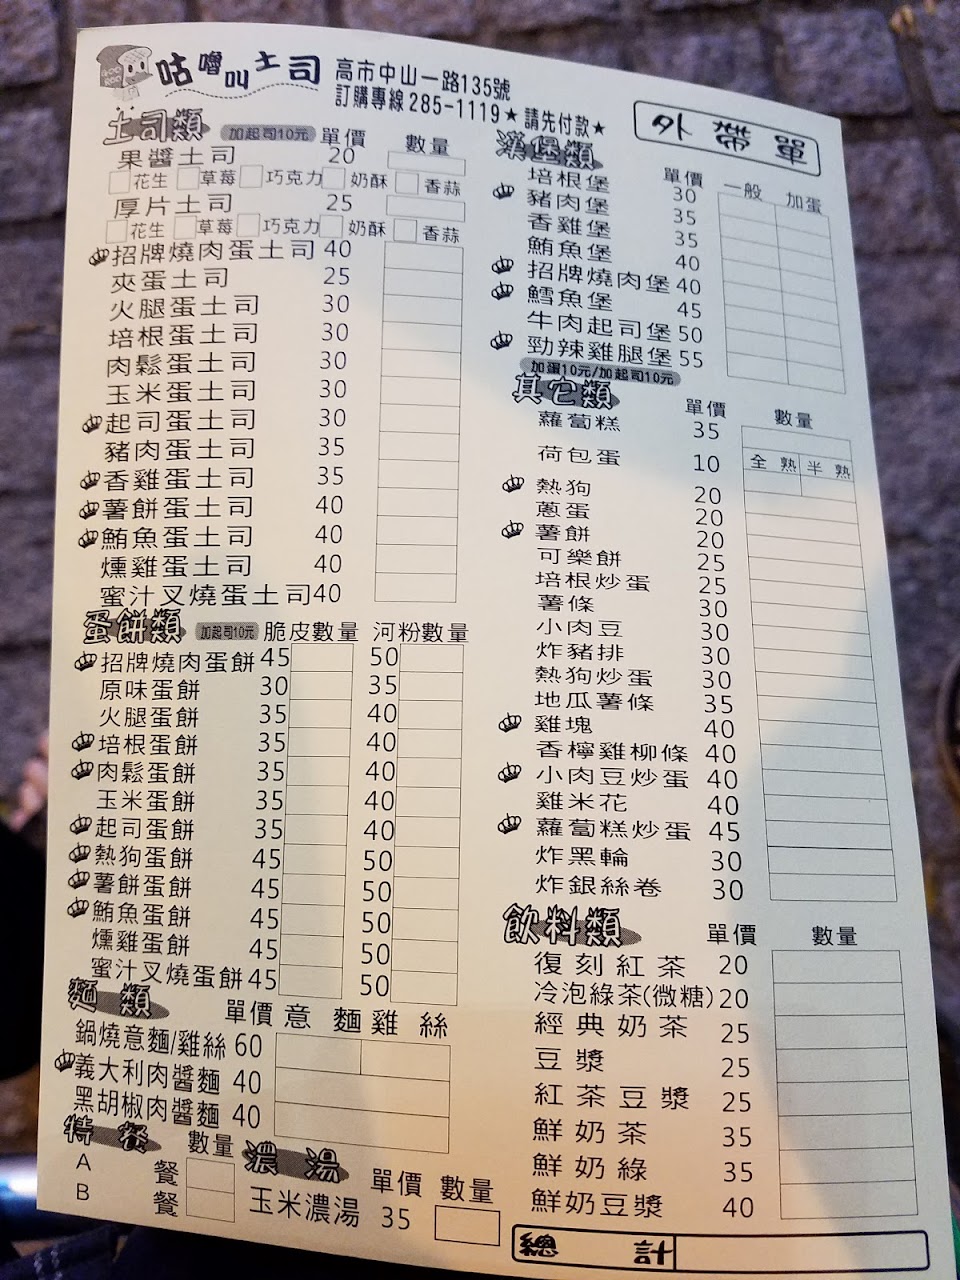 咕嚕叫土司
高市中山一路135號
訂購專線285-1119★請先付款★
外帶單
土司類 加起司10元 單價 數量
果醬土司 20
花生 草莓 巧克力 奶酥 香蒜
厚片土司 25
花生 草莓 巧克力 奶酥 香蒜
招牌燒肉蛋土司 40
夾蛋土司 25
火腿蛋土司 30
培根蛋土司 30
肉鬆蛋土司 30
玉米蛋土司 30
起司蛋土司 30
豬肉蛋土司 35
香雞蛋土司 35
薯餅蛋土司 40
鮪魚蛋土司 40
燻雞蛋土司 40
蜜汁叉燒蛋土司 40
蛋餅類 加起司10元 脆皮數量 河粉數量
招牌燒肉蛋餅 45 50
原味蛋餅 30 35
火腿蛋餅 35 40
培根蛋餅 35 40
肉鬆蛋餅 35 40
玉米蛋餅 35 40
起司蛋餅 35 40
熱狗蛋餅 45 50
薯餅蛋餅 45 50
鮪魚蛋餅 45 50
燻雞蛋餅 45 50
蜜汁叉燒蛋餅 45 50
麵類 單價 意麵 雞絲
鍋燒意麵/雞絲 60
義大利肉醬麵 40
黑胡椒肉醬麵 40
特餐 數量
A餐
B餐
濃湯 單價 數量
玉米濃湯 35
漢堡類 單價 一般 加蛋
培根堡 30
豬肉堡 35
香雞堡 35
鮪魚堡 40
招牌燒肉堡 40
鱈魚堡 45
牛肉起司堡 50
勁辣雞腿堡 55
加蛋10元/加起司10元
其它類 單價 數量
蘿蔔糕 35
荷包蛋 10 全熟 半熟
熱狗 20
蔥蛋 20
薯餅 20
可樂餅 25
培根炒蛋 25
薯條 30
小肉豆 30
炸豬排 30
熱狗炒蛋 30
地瓜薯條 35
雞塊 40
香檸雞柳條 40
小肉豆炒蛋 40
雞米花 40
蘿蔔糕炒蛋 45
炸黑輪 30
炸銀絲卷 30
飲料類 單價 數量
復刻紅茶 20
冷泡綠茶(微糖) 20
經典奶茶 25
豆漿 25
紅茶豆漿 25
鮮奶茶 35
鮮奶綠 35
鮮奶豆漿 40
總計